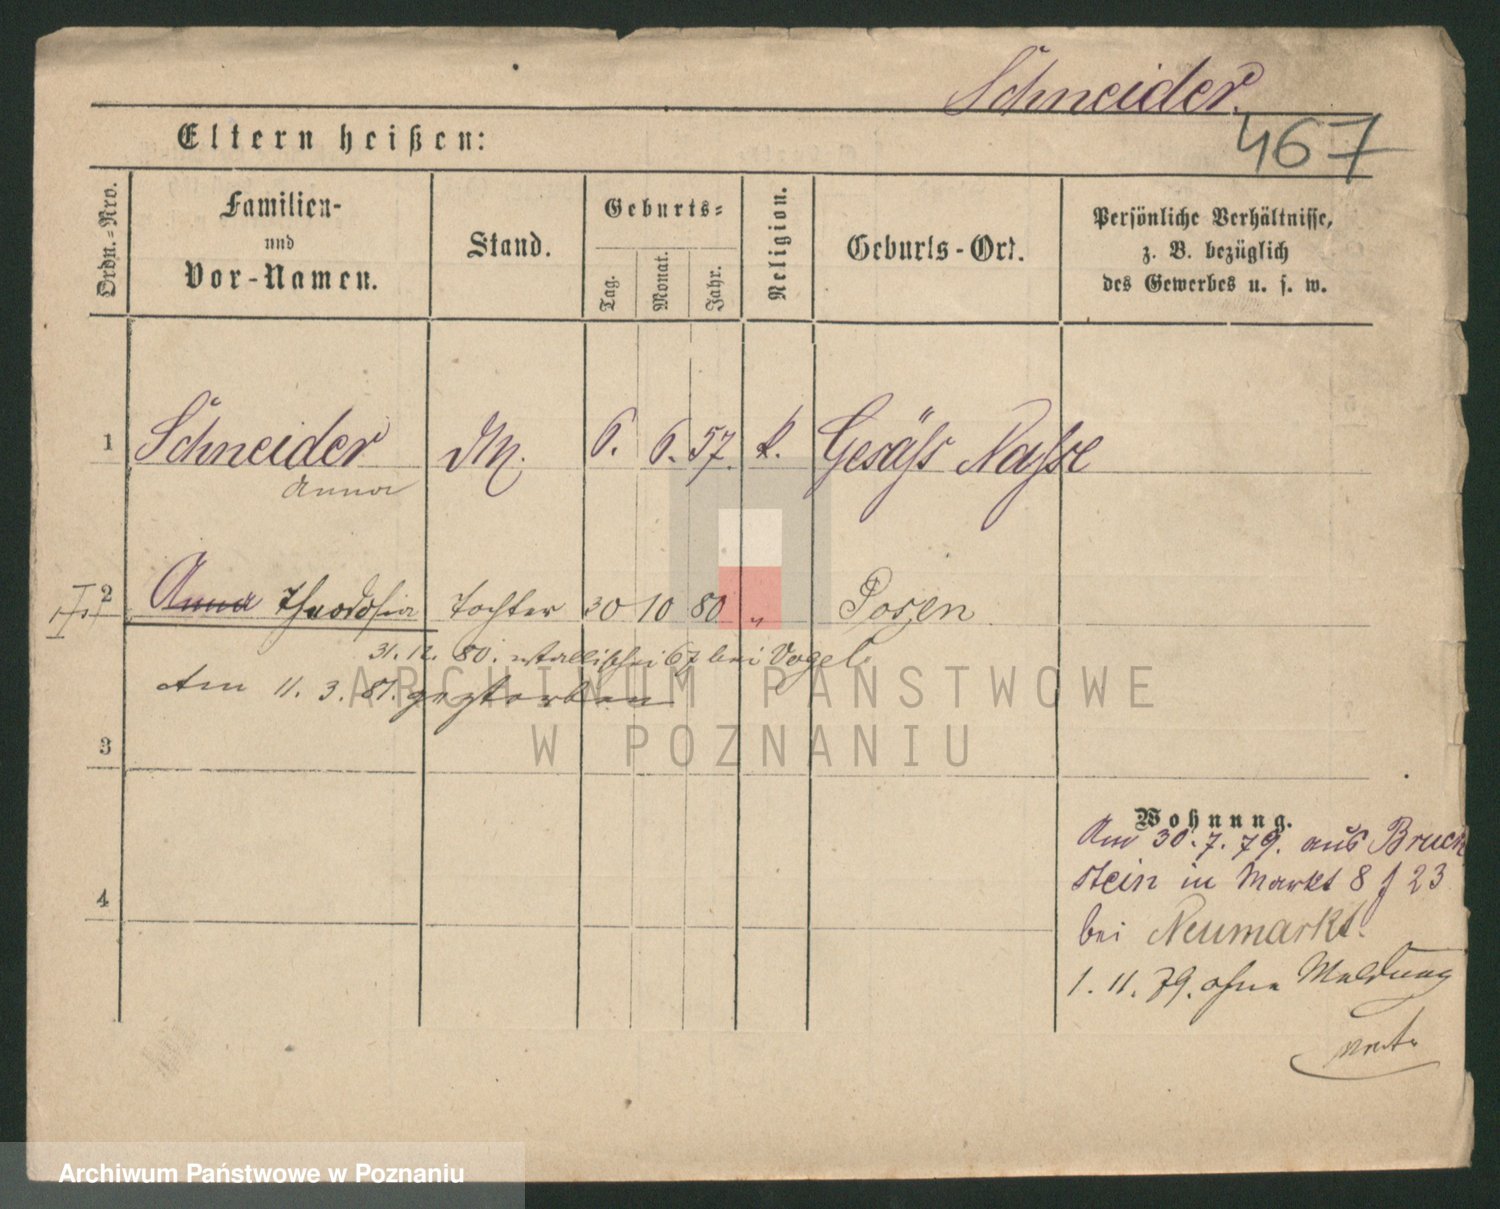 Schneider.
467
Eltern heißen:
Ordn.-Nro.
Familien-
und
Vor-Namen.
Stand.
Geburts-
Tag.
Monat.
Jahr.
Religion.
Geburts-Ort.
Persönliche Verhältnisse,
z. B. bezüglich
des Gewerbes u. s. w.
1 Schneider 6. 6. 57. k. Gesäss
Anna
2 Anna Theodosia Tochter 30 10 80 " Posen
31. 12. 80. 67 bei Vogel.
Am 11. 3. 81. gestorben
3
Wohnung.
Am 30. 7. 79. aus Bruck
stein in Markt 8 f 23
4
bei Neumarkt.
1. 11. 79. ohne Meldung
ARCHIWUM PAŃSTWOWE
W POZNANIU
Archiwum Państwowe w Poznaniu